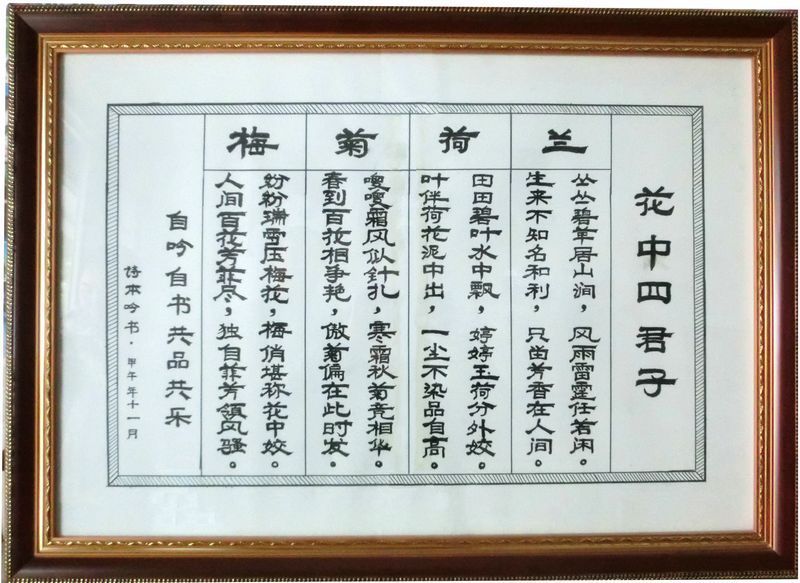 花中四君子
兰
丛丛碧草居山涧，风雨雷霆任若闲。
生来不知名和利，只尚芳香在人间。
荷
田田碧叶水中飘，婷婷玉荷分外姣。
叶伴荷花泥中出，一尘不染品自高。
菊
嗖嗖霜风似針扎，寒霜秋菊竞相华。
春到百花相争艳，傲菊偏在此时发。
梅
纷纷瑞雪压梅花，梅俏堪称花中姣。
人间百花芳菲尽，独自菲芳领风骚。
自吟自书共品共乐
本吟书·甲午年十一月